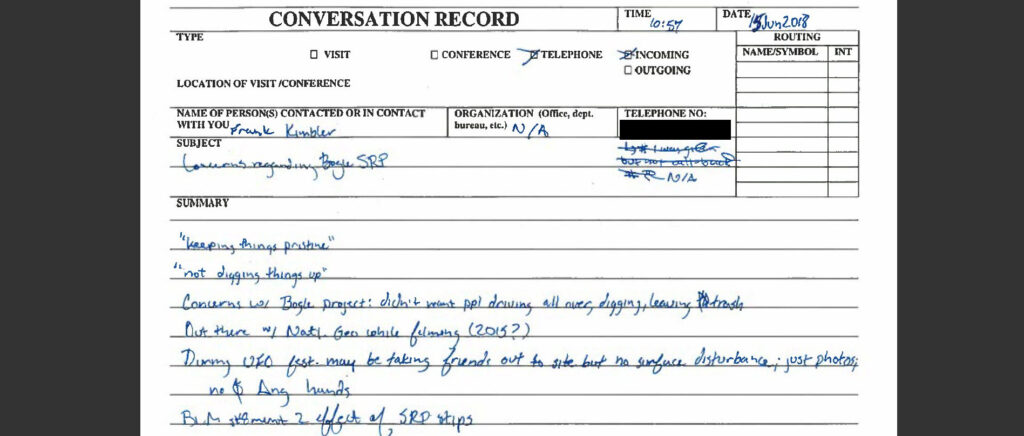 CONVERSATION RECORD
TIME
10:57
DATE
15 Jun 2018
TYPE
ROUTING
☐ VISIT ☐ CONFERENCE ☒ TELEPHONE ☒ INCOMING
NAME/SYMBOL INT
☐ OUTGOING
LOCATION OF VISIT/CONFERENCE
NAME OF PERSON(S) CONTACTED OR IN CONTACT
WITH YOU Frank Kimbler
ORGANIZATION (Office, dept.
bureau, etc.) N/A
TELEPHONE NO:
SUBJECT
Concerns regarding Bogle SRP
but not call-back
# N/A
SUMMARY
"keeping things pristine"
"not digging things up"
Concerns w/ Bogle project: didn't want ppl driving all over, digging, leaving trash
Out there w/ Natl. Geo while filming (2015?)
UFO fest. may be taking friends out to site but no surface disturbance; just photos;
no $ hands
BLM effect of SRP stips